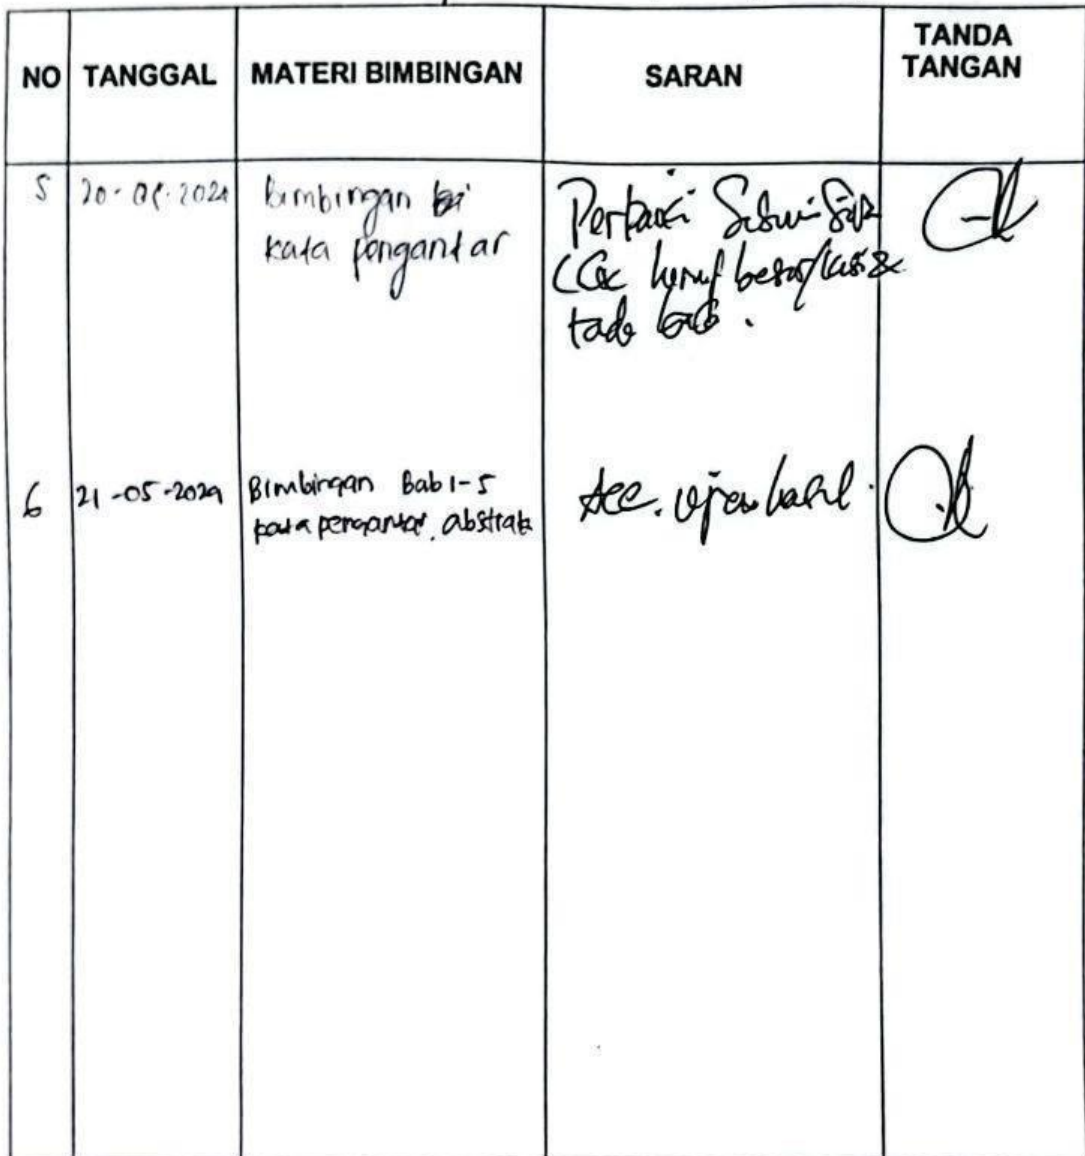 NO TANGGAL MATERI BIMBINGAN SARAN TANDA TANGAN
5 20-05-2024 Bimbingan
kata pengantar
Perbaiki Sesuai
(Cek huruf besar/
6 21-05-2024 Bimbingan Bab 1-5
kata pengantar. abstrak
Acc. ujian hasil.